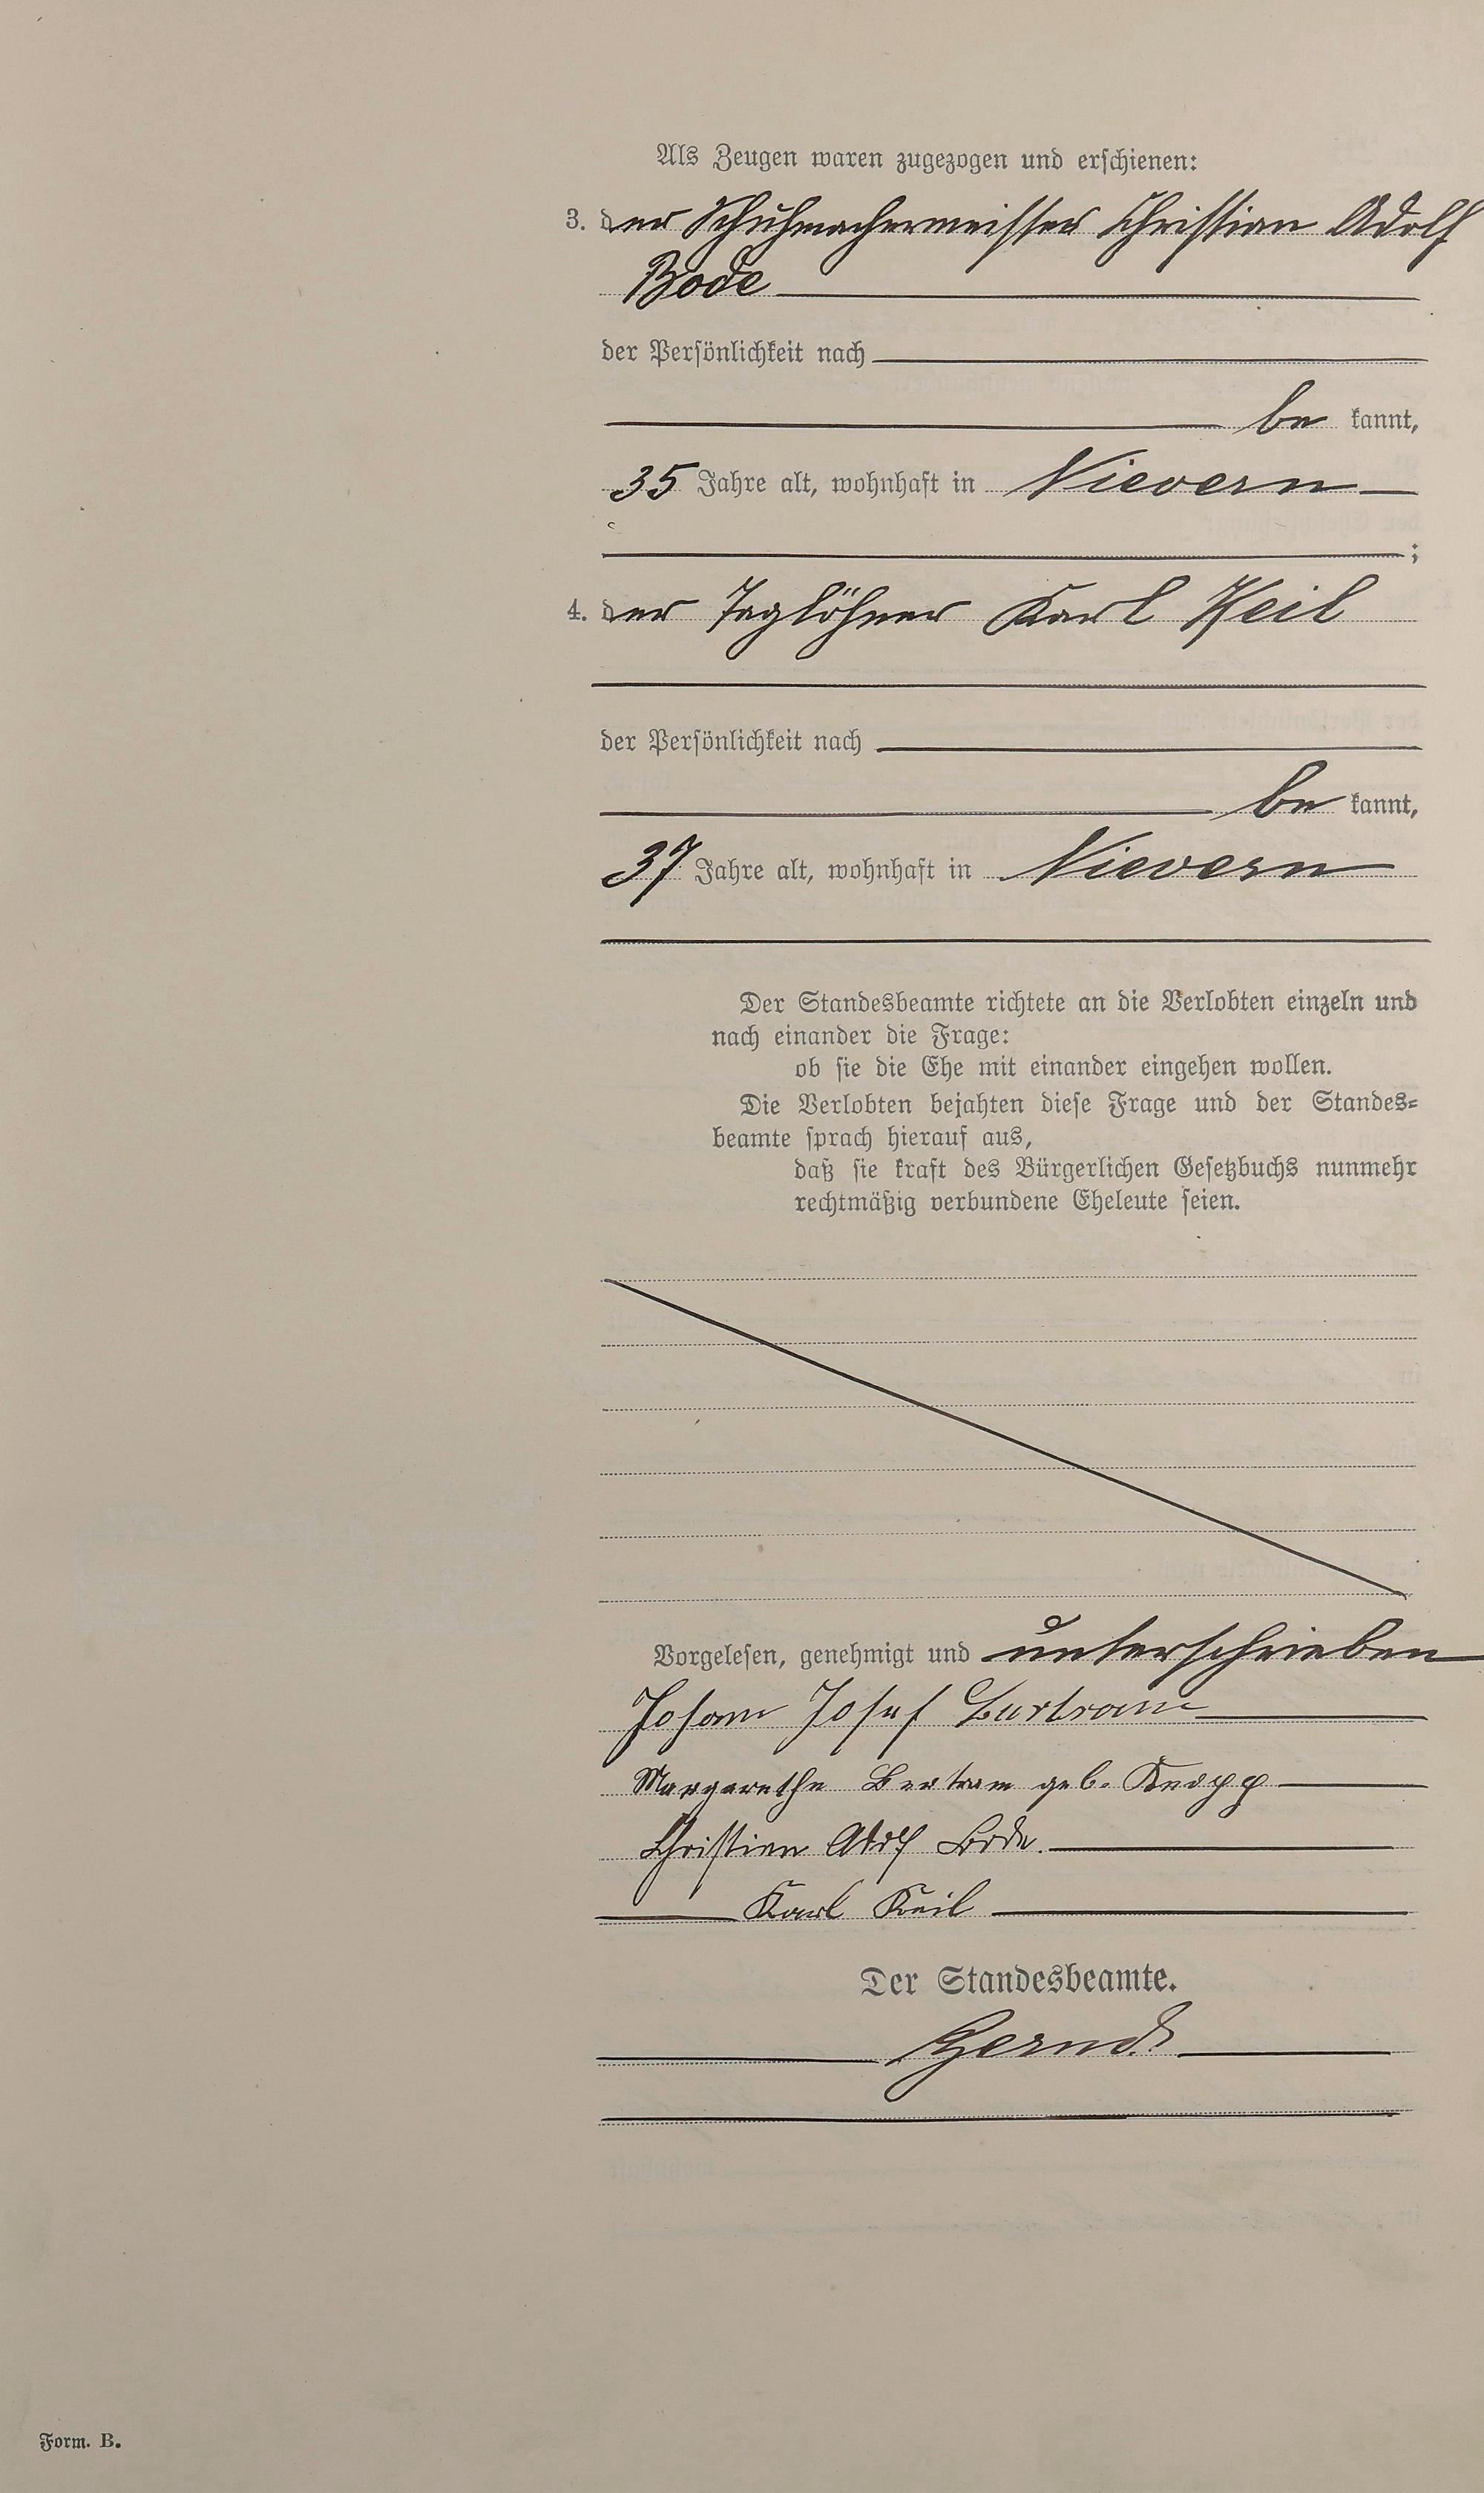 Als Zeugen waren zugezogen und erschienen:
3. der Schuhmachermeister Christian Adolf
Bode
der Persönlichkeit nach
be kannt,
35 Jahre alt, wohnhaft in Nievern
;
4. der Taglöhner Karl Keil
der Persönlichkeit nach
be kannt,
37 Jahre alt, wohnhaft in Nievern
Der Standesbeamte richtete an die Verlobten einzeln und
nach einander die Frage:
ob sie die Ehe mit einander eingehen wollen.
Die Verlobten bejahten diese Frage und der Standes=
beamte sprach hierauf aus,
daß sie kraft des Bürgerlichen Gesetzbuchs nunmehr
rechtmäßig verbundene Eheleute seien.
Vorgelesen, genehmigt und unterschrieben
Johann Josef Bertram
Margarethe Bertram geb. Knopp
Christian Adolf Bode.
Karl Keil
Der Standesbeamte.
Form. B.